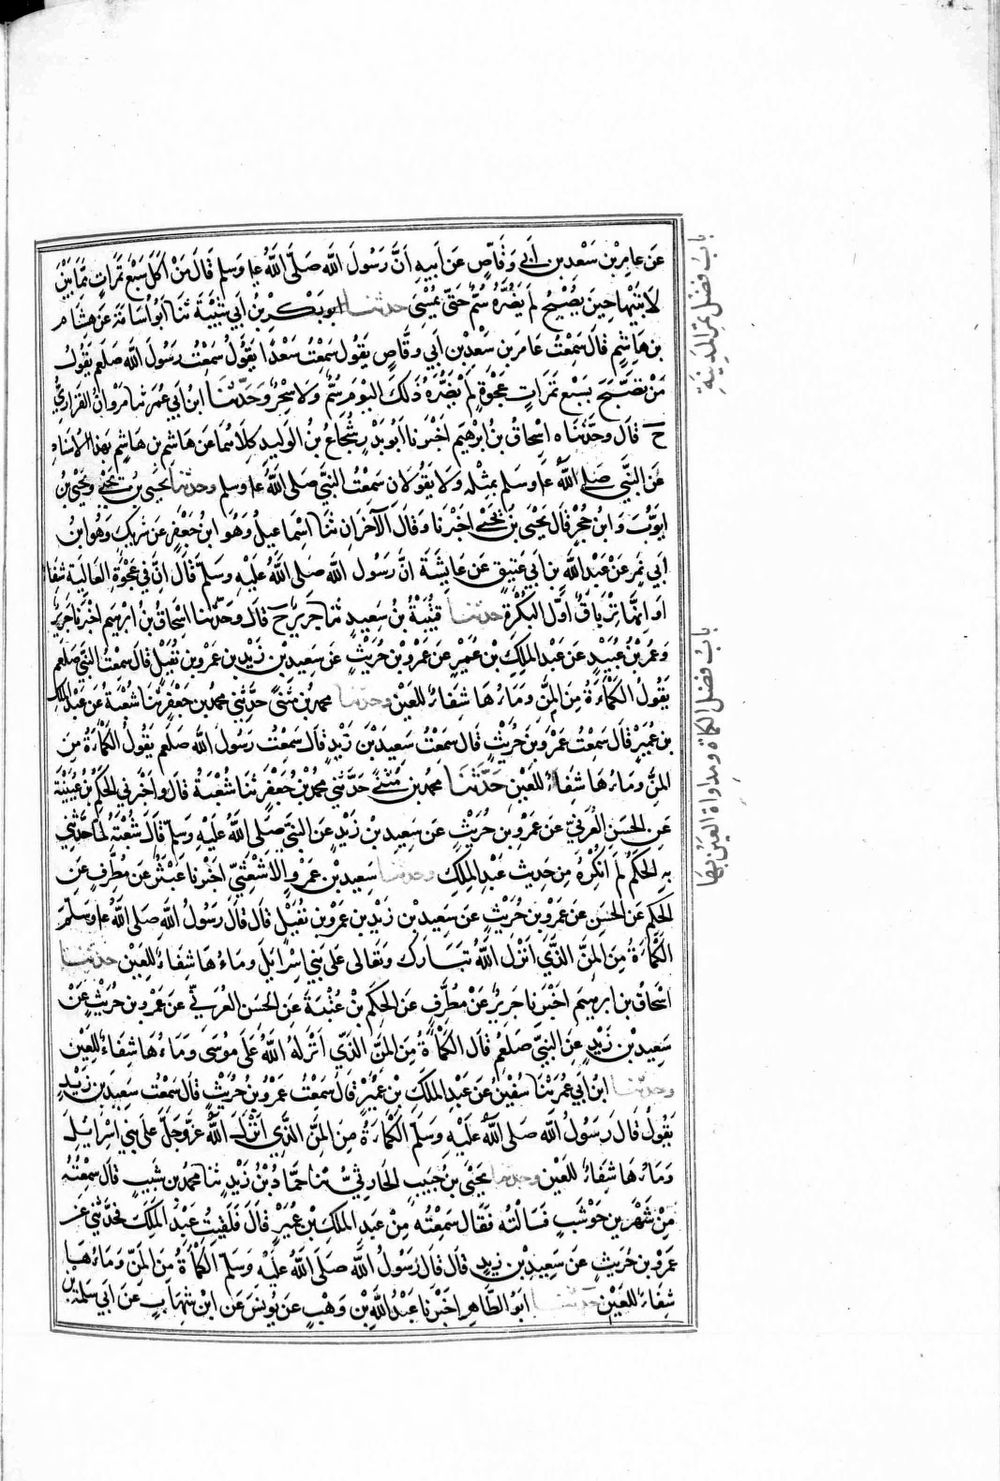 عَن عَامِرِ بْنِ سَعْدِ بن أَبِي وَقَّاصٍ عَن أَبِيهِ أَنَّ رَسُولَ اللَّه صَلَّى اللَّهُ علـ وسَلم قَالَ مَنْ أَكَلَ سَبْعَ تَمَرَاتٍ مِمَّا بَيْنَ
لَابَتَيْهَا حِينَ يُصْبِحُ لَم يَضُرَّهُ سُمٌّ حَتَّى يُمْسِيَ حدثنا ابو بَكْرِ بْنُ أَبِي شَيْبَةَ ثَنَا أَبُو أُسَامَةَ عَن هِشَام
بن هَاشِمٍ قَالَ سَمِعْتُ عَامِرَ بن سَعْدِ بْنِ أَبِي وَقَّاصٍ يَقُولُ سَمِعْتُ سَعْدًا يَقُولُ سَمِعْت رَسُولَ اللَّه صَلعم يَقُولُ
مَنْ تَصَبَّحَ بِسَبْعِ تَمَرَاتٍ عَجْوَةٍ لَمْ يَضُرَّهُ ذَلِكَ اليَوْمَ سُمٌّ وَلَا سِحْرٌ وَحَدَّثَنَا ابنُ أَبِي عُمَرَ ثنا مَرْوَانُ الفَزَارِيُّ
ح قَالَ وحَدَّثَنَاه إِسْحَاقُ بْنُ إِبْرَهِيمَ أَخْبَرَنَا أَبُو بَدْرٍ شُجَاعُ بْنُ الوَلِيدِ كِلَاهُمَا عَن هَاشِمِ بن هَاشِمٍ بهَذا الإِسْنَادِ
عَنِ النَّبِيِّ صَلى اللَّهُ علـ وسَلم بِمِثْلِهِ وَلَا يَقُولَانِ سَمِعْتُ النَّبِيَّ صَلَى اللَّهُ علـ وسلم وحدثنا يَحْيَى بْنُ يَحْيَى وَيَحْيَى بْنُ
أَيُّوبَ وَابْنُ حُجْرٍ قَالَ يَحْيَى بْنُ يَحْيَى أَخْبَرَنَا وَقَالَ الآخَرَانِ ثَنَا إِسْمَاعِيلُ وَهُوَ ابنُ جَعْفَرٍ عَن شَرِيكٍ وَهُوَ ابْنُ
أَبِي نَمِرٍ عَنْ عَبْدِ اللَّهِ بن أَبِي عَتِيقٍ عَن عَايِشَةَ أنَّ رَسُولَ اللَّه صَلَى اللَّهُ عَلَيْهِ وَسَلَّمَ قَالَ إِنَّ فِي عَجْوَةِ العَالِيَةِ شِفَاءً
او إِنَّهَا تِرْيَاقٌ أَوَّلَ البُكْرَةِ حدثنا قُتَيْبَةُ بْنُ سَعِيدٍ ثنا جَرِيرٌ ح قَالَ وَحَدَّثَنا إِسْحَاقُ بن إبْرَهِيمَ أخْبَرَنَا جَرِيرٌ
وَعُمَرُ بْنُ عُبَيْدٍ عَن عَبْدِ المَلِكِ بن عُمَيْرٍ عَن عَمْرِو بْنِ حُرَيْثٍ عَن سَعِيدِ بْنِ زَيْدِ بن عَمْرِو بن نُفَيْلٍ قَالَ سَمِعْتُ النَّبِيَّ صَلعَم
يَقُولُ الكَمْأَةُ مِنَ المَنِّ وَمَاؤُهَا شِفَاءٌ للعَيْنِ وحدثنا محمد بنُ مُثَنَّى حَدَّثَنِي محمد بن جَعْفَرٍ ثنَا شُعْبَةُ عَن عَبْدِ المَلِكِ
بن عُمَيْرٍ قَالَ سَمِعْت عَمْرَو بن حُرَيْثٍ قَالَ سَمِعْتُ سَعِيدَ بْنَ زَيْدٍ قَالَ سَمِعْتُ رَسُولَ اللَّه صَلعَم يَقُولُ الكَمْأَةُ مِنَ
المَنِّ ومَاؤُهَا شِفَاءٌ للعَيْنِ حَدَّثَنَا محمَّد بن مُثَنَّى حَدَّثَنِي مُحَمَّدُ بْنُ جَعْفَرٍ ثَنَا شُعْبَةُ قَالَ وأخْبَرَنِي الحَكَمُ بْنُ عُتَيْبَةَ
عَنِ الحَسَنِ العُرَنِيِّ عَن عَمْرِو بن حُرَيْثٍ عَن سَعِيدِ بن زَيْدٍ عَنِ النَّبِيِّ صَلَى اللَّهُ عَلَيْهِ وَسَلَّمَ قَالَ شُعْبَةُ لمَّا حَدَّثَنِي
بِهِ الحَكَمُ لَمْ أُنْكِرْهُ مِن حَدِيث عَبْدِ المَلِكِ وحدثنا سَعِيدُ بن عَمْرٍو الأَشْعَثِيُّ أَخْبَرَنَا عَبْثَرٌ عَن مُطَرِّفٍ عَنِ
الحَكَمِ عَن الحَسَنِ عَن عَمْرِو بن حُرَيْثٍ عَن سَعِيدِ بن زَيْدِ بن عَمْرِو بن نُفَيْلٍ قَالَ قَالَ رَسُولُ اللَّه صَلى اللَّهُ علـ وسَلَّم
الكَمْأَةُ مِنَ المَنِّ الَّذِي أَنْزَلَ اللَّهُ تَبَارَكَ وَتَعَالى عَلَى بَنِي إِسْرَائِيلَ وَمَاءُهَا شِفَاءٌ للعَيْنِ حدثنا
إسْحَاقُ بن إبرهِيم أَخْبَرَنَا جَرِيرٌ عَنْ مُطَرِّفٍ عَنِ الحَكَمِ بْنِ عُتَيْبَةَ عَنِ الحَسَنِ العُرَنِيِّ عَن عَمْرِو بن حُرَيْثٍ عَنْ
سَعِيدِ بْنِ زَيْدٍ عَنِ النَّبِيِّ صَلعَم قَالَ الكَمْأَةُ مِنَ المَنِّ الَّذِي أَنْزَلَهُ اللَّهُ عَلَى مُوسَى وَمَاءُهَا شِفَاءٌ للعَيْنِ
وحدثنا ابْنُ أَبِي عُمَرَ ثنَا سُفْيَنُ عَن عَبْدِ المَلِكِ بْنِ عُمَيْرٍ قَالَ سَمِعْتُ عَمْرَو بْنَ حُرَيْثٍ قَالَ سَمِعْتُ سَعِيدَ بن زَيْدٍ
يَقُولُ قَالَ رَسُولُ اللَّه صَلى اللَّهُ عَلَيْهِ وَسَلَّمَ الكَمْأَةُ مِنَ المَنِّ الَّذِي أَنْزَلَ اللَّهُ عَزَّ وَجَلَّ عَلَى بَنِي إِسْرَائِيلَ
وَمَاؤُهَا شِفَاءٌ للعَيْنِ وحدثنا يَحْيَى بن حَبِيبٍ الحَارِثِيُّ ثنا حَمَّادُ بْنُ زَيْدٍ ثنا مُحَمَّد بن شَبِيبٍ قَالَ سَمِعْتُهُ
مِنْ شَهْرِ بن حَوْشَبٍ فَسَأَلْتُهُ فَقَالَ سَمِعْتُه مِنْ عَبْدِ المَلِكِ بْنِ عُمَيْرٍ قَالَ فَلَقِيتُ عَبْدَ المَلِكِ فحَدَّثَنِي عَن
عَمْرِو بن حُرَيْثٍ عَن سَعِيدِ بْنِ زَيدٍ قَالَ قَالَ رَسُولُ اللَّه صَلَى اللَّهُ عَلَيْهِ وَسَلَّمَ الكَمْأَةُ مِنَ المَنِّ وَمَاؤُهَا
شِفَاءٌ للعَيْنِ حدثنا أَبُو الطَّاهِرِ أَخْبَرَنَا عَبْدُ اللَّهِ بْن وَهْبٍ عَن يُونسَ عَنِ ابْنِ شِهَابٍ عَن أَبِي سَلَمَةَ بن
باب فضل تمر المدينة
باب فضل الكماة ومداواة العين بها